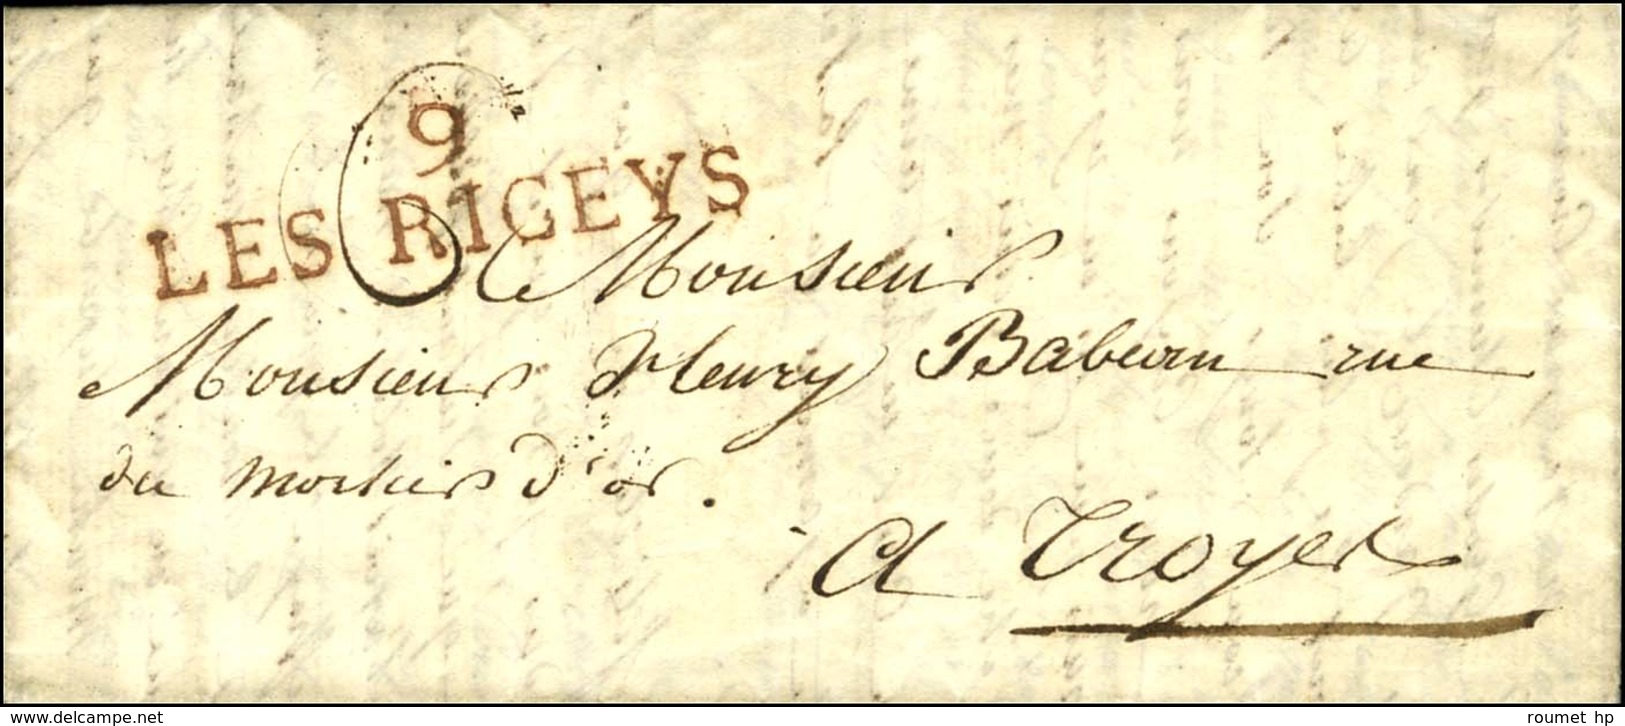 9
LES RICEYS
Monsieur
Monsieur fleury Babeau rue
du mortier d'or.
A Troyes
www.delcampe.net
roumet hp